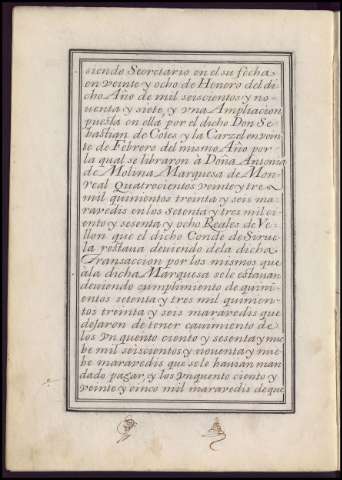 siendo Secretario en el su fecha
en veinte y ocho de Henero del di-
cho Año de mil seiscientos y no-
uenta y siete, y vna Ampliacion
puesta en ella por el dicho Don Se-
bastian de Cotes y la Carzel en vein-
te de Febrero del mismo Año por
la qual se libraron a Doña Antonia
de Molina Marquesa de Mon-
real Quatrocientos veinte y tres
mil quinientos treinta y seis ma-
ravedis en los Setenta y tres mil ci-
ento y sesenta y ocho Reales de Ve-
llon que el dicho Conde de Sirue
la restaua deuiendo de la dicha
Transaccion por los mismos que
a la dicha Marquesa se le estauan
deuiendo cumplimiento de quini-
entos setenta y tres mil quinien-
tos treinta y seis maravedis que
dejaron de tener cauimiento de
los vn quento ciento y sesenta y nue
be mil seiscientos y nouenta y nue
be maravedis que se le hauian man
dado pagar, y los vn quento ciento y
veinte y cinco mil maravedis de que